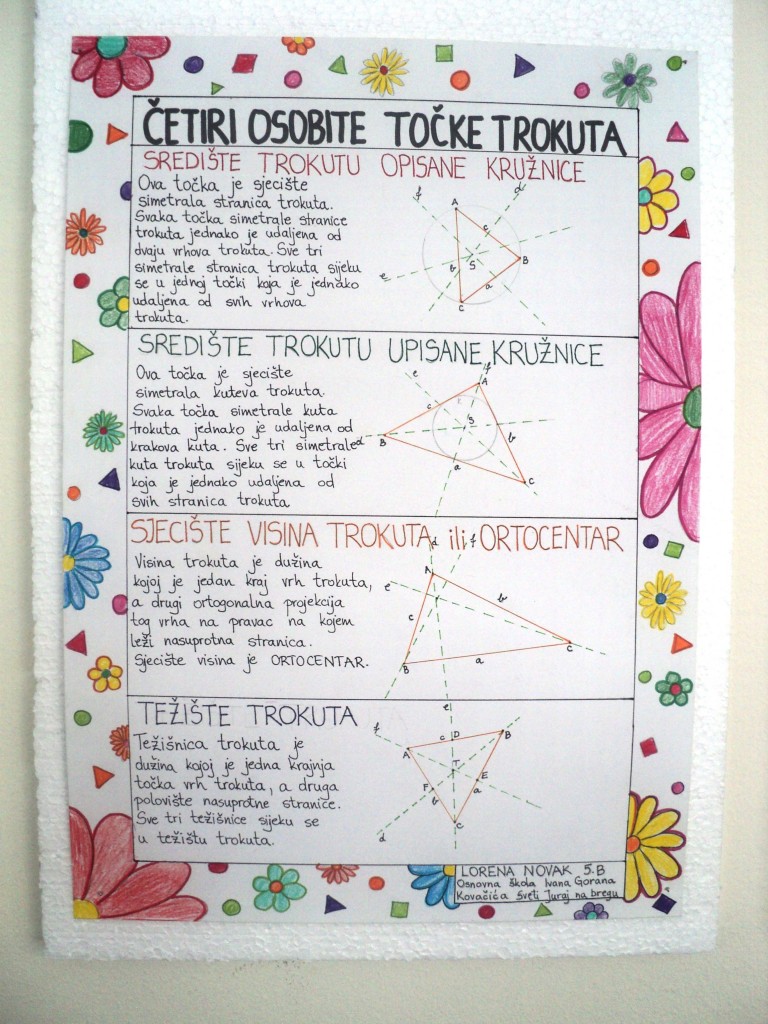 ČETIRI OSOBITE TOČKE TROKUTA
SREDIŠTE TROKUTU OPISANE KRUŽNICE
Ova točka je sjecište
simetrala stranica trokuta.
Svaka točka simetrale stranice
trokuta jednako je udaljena od
dvaju vrhova trokuta. Sve tri
simetrale stranica trokuta sijeku
se u jednoj točki koja je jednako
udaljena od svih vrhova
trokuta.
f
d
A
c
e
b
S
B
a
C
SREDIŠTE TROKUTU UPISANE KRUŽNICE
Ova točka je sjecište
simetrala kuteva trokuta.
Svaka točka simetrale kuta
trokuta jednako je udaljena od
krakova kuta. Sve tri simetrale
kuta trokuta sijeku se u točki
koja je jednako udaljena od
svih stranica trokuta
e
f
A
c
S
d
B
b
a
C
SJECIŠTE VISINA TROKUTA ili ORTOCENTAR
Visina trokuta je dužina
kojoj je jedan kraj vrh trokuta,
a drugi ortogonalna projekcija
tog vrha na pravac na kojem
leži nasuprotna stranica.
Sjecište visina je ORTOCENTAR.
d
f
A
e
b
c
C
B
a
TEŽIŠTE TROKUTA
Težišnica trokuta je
dužina kojoj je jedna krajnja
točka vrh trokuta, a druga
polovište nasuprotne stranice.
Sve tri težišnice sijeku se
u težištu trokuta.
e
f
c
D
B
A
T
E
F
a
b
C
d
LORENA NOVAK 5.B
Osnovna škola Ivana Gorana
Kovačića Sveti Juraj na bregu